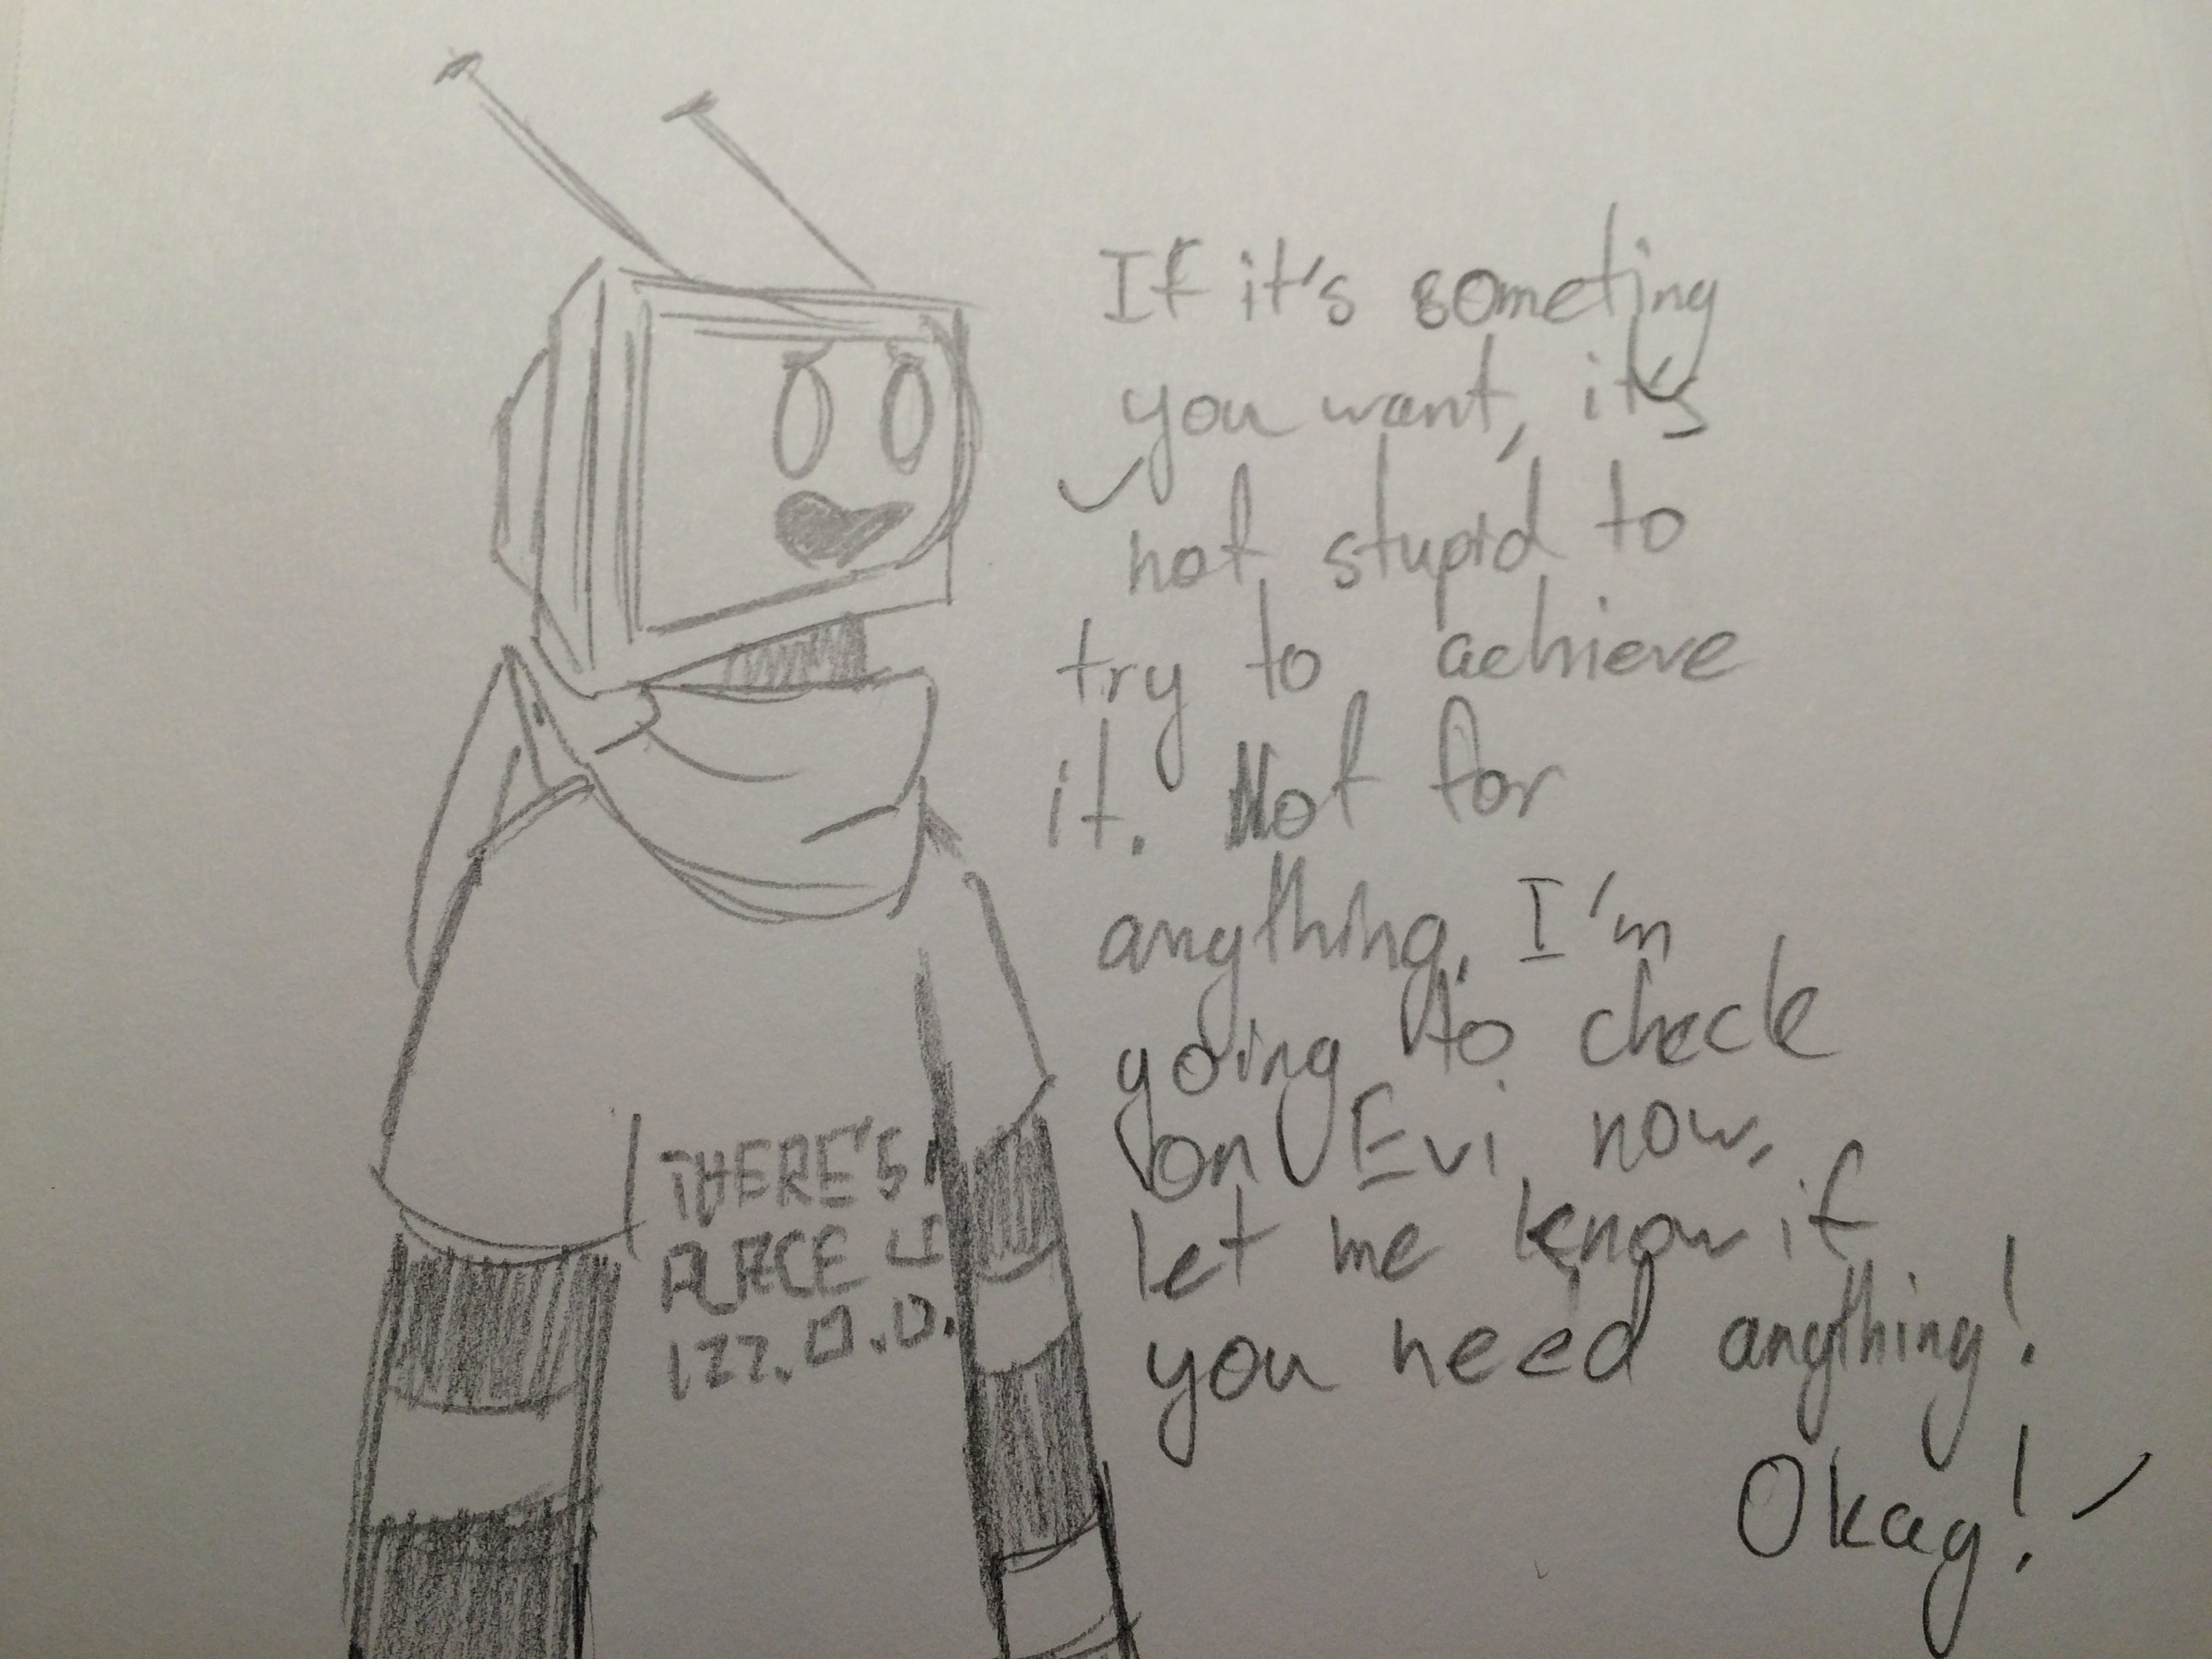 If it's someting
you want, it's
not stupid to
try to achieve
it. Not for
anything. I'm
going to check
on Evi now,
let me know if
you need anything!
Okay!
THERE'S
PLACE LI
127.0.0.